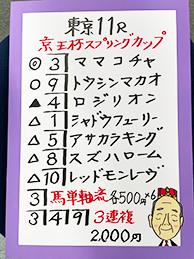 東京11R
京王杯スプリングカップ
◎ 3 ママコチャ
○ 9 トウシンマカオ
▲ 4 ロジリオン
△ 1 シャドウフューリー
△ 5 アサカラキング
△ 8 スズハローム
△ 10 レッドモンレーヴ
3 馬単軸流 各500円×6
3 4 9 3連複
2,000円